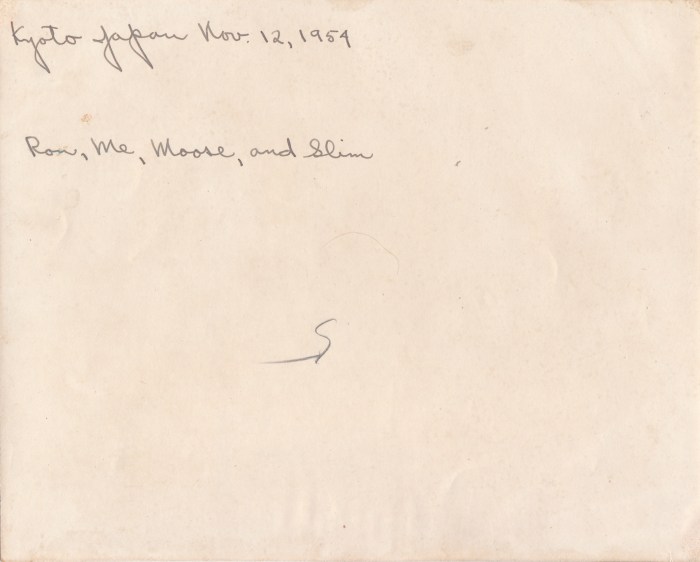 Kyoto Japan Nov. 12, 1954
Ron, Me, Moose, and Slim